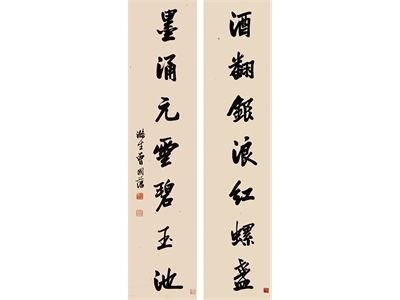 酒翻銀浪紅螺盏
墨涌元雲碧玉池
滌生曾國藩